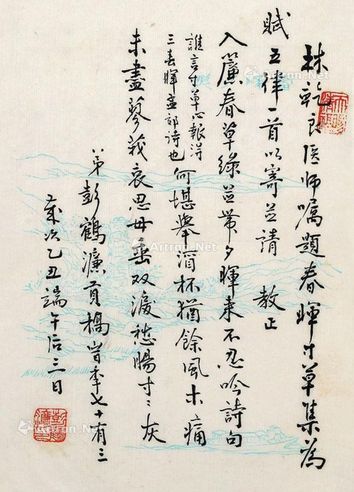 林乾良医师嘱題春暉寸草集為
賦五律一首以寄並請 教正
入簾春草綠並帶夕暉來不忍吟詩句
誰言寸草心報得
三春暉孟郊詩也 何堪舉酒杯猶餘風木痛
未盡蓼莪哀思母垂双淚愁腸寸々灰
弟彭鶴濂 槁時年七十有三
歲次乙丑端午后三日
Artron.Net